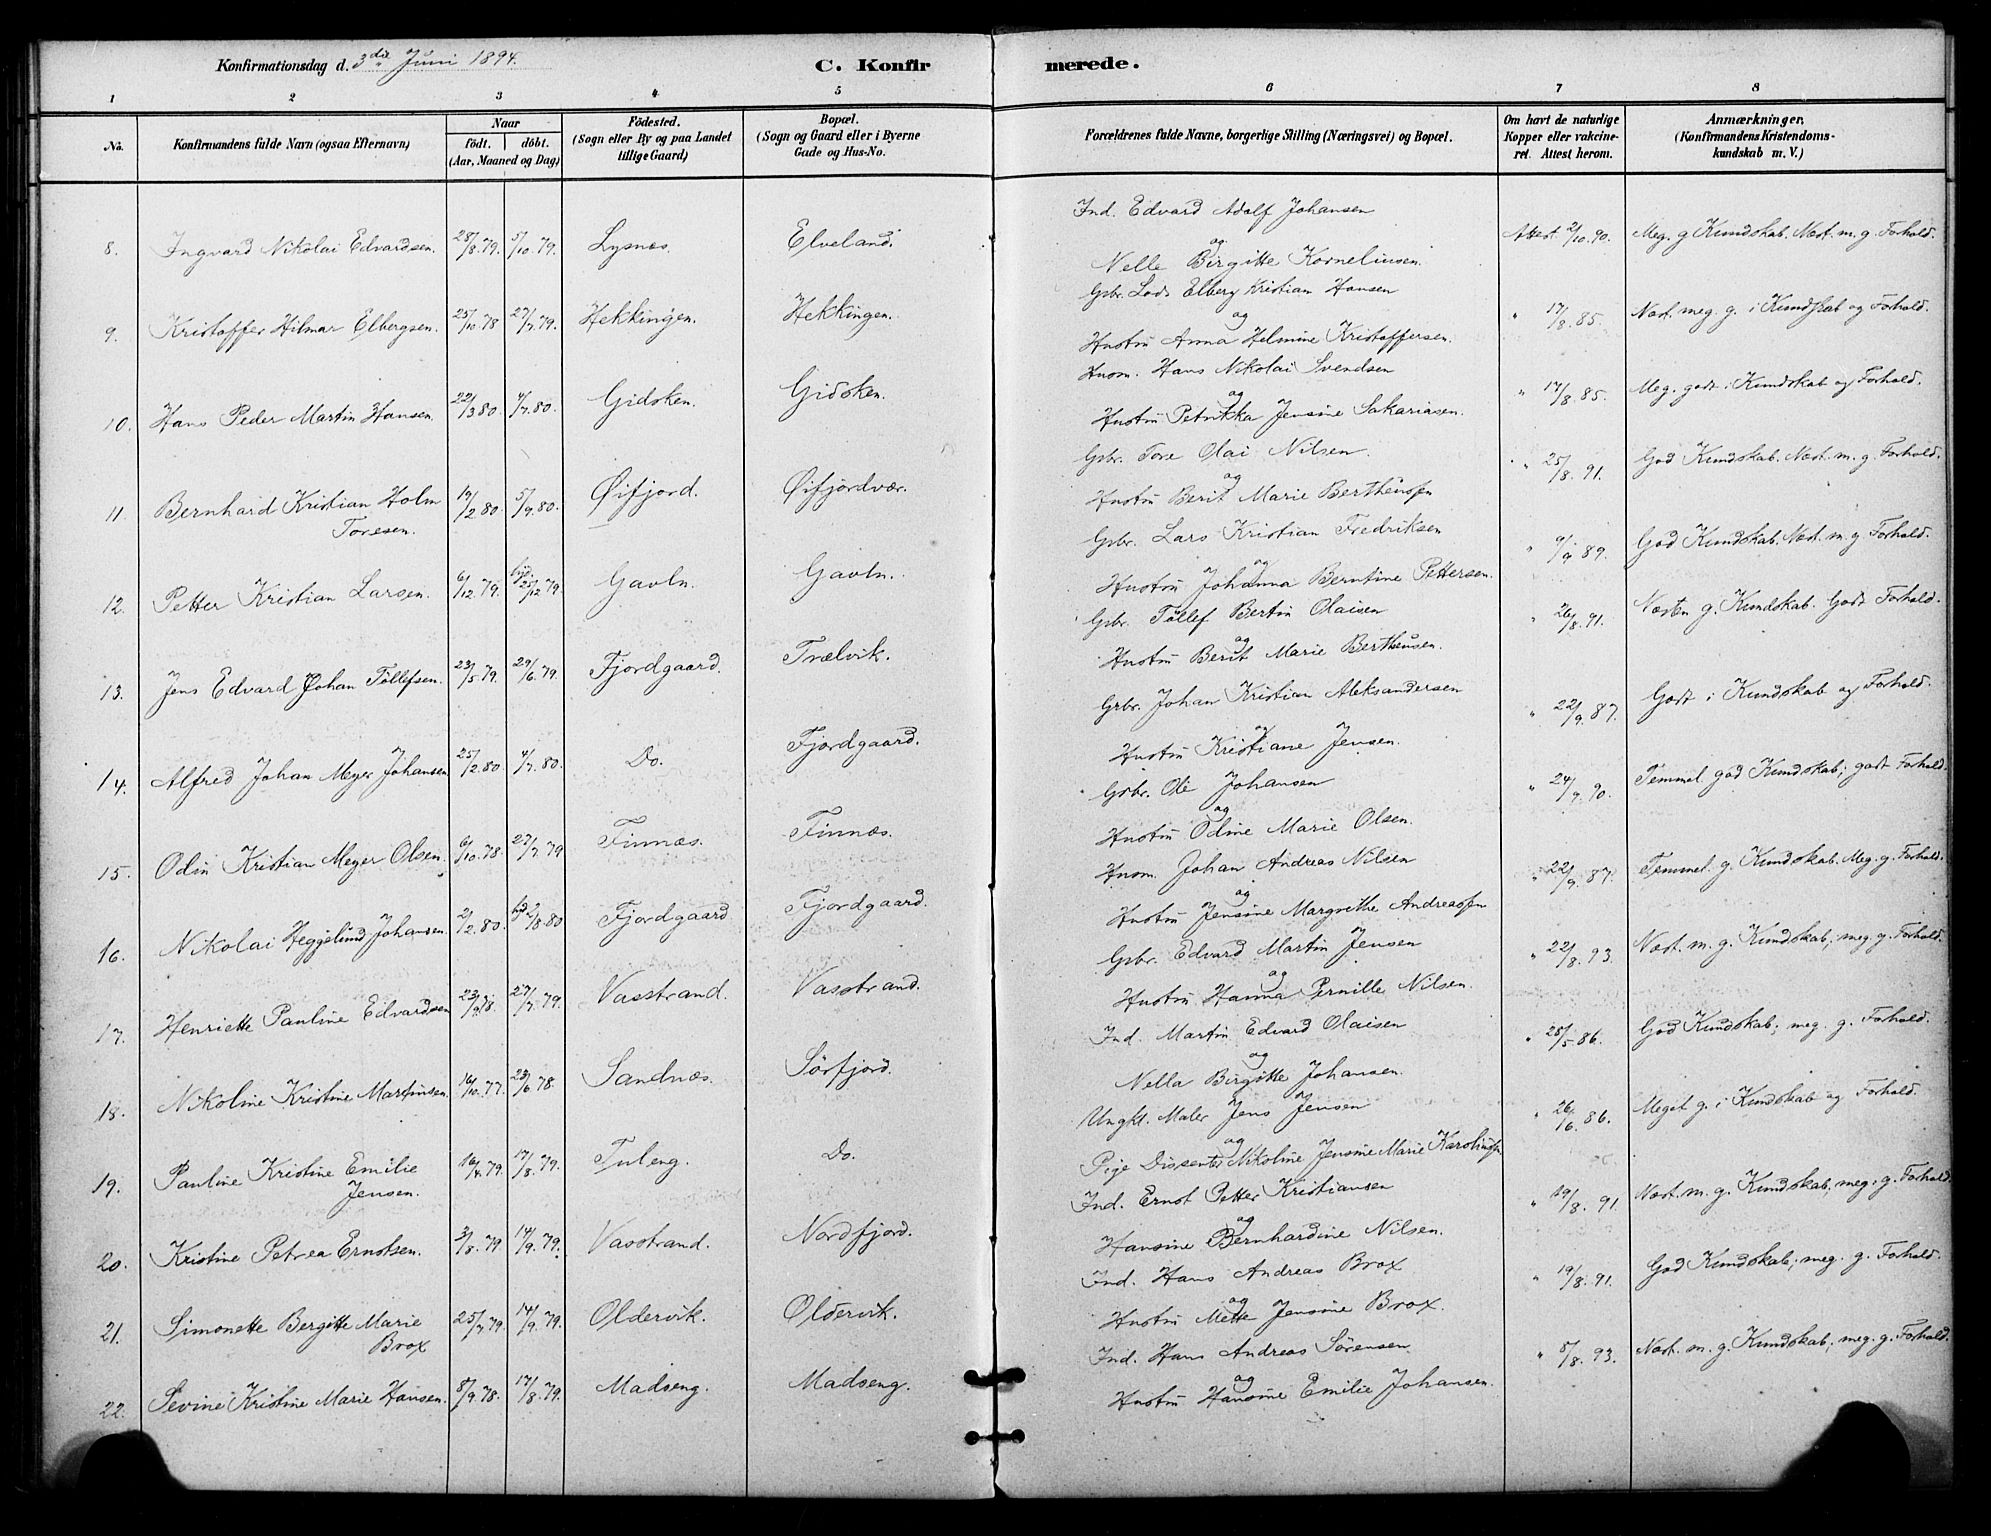 Konfirmationsdag d. 3die Juni 1894.
C. Konfirmerede.
1 2 3 4 5 6 7 8
No.
Konfirmandens fulde Navn (ogsaa Efternavn)
Naar
födt. döbt.
(Aar, Maaned og Dag)
Födested.
(Sogn eller By og paa Landet
tillige Gaard)
Bopæl.
(Sogn og Gaard eller i Byerne
Gade og Hus-No.
Forældrenes fulde Navne, borgerlige Stilling (Næringsvei) og Bopæl.
Om havt de naturlige
Kopper eller vakcine-
ret. Attest herom.
Anmærkninger.
(Konfirmandens Kristendoms-
kundskab m. V.)
8. Ingvard Nikolai Edvardsen. 28/8.79. 5/10.79. Lysnæs. Elveland.
Ind. Edvard Adolf Johansen
og
Nelle Birgitte Korneliusen.
Attest 2/10.90. Meg. g Kundskab. Næst. m. g. Forhold.
9. Kristoffer Hilmar Elbergsen. 25/10.78 27/7.79. Hekkingen. Hekkingen.
Gbr. Lods Elberg Kristian Hansen
og
Hustru Anna Helmine Kristoffersen.
" 17/8.85. Næst. meg. g. i Kundskab og Forhold.
10. Hans Peder Martin Hansen. 22/3.80. 4/7.80. Gidsken. Gidsken.
Husm. Hans Nikolai Svendsen
og
Hustru Petrikka Jensine Sakariasen.
" 17/8.85. Meg. godt i Kundskab og Forhold.
11. Bernhard Kristian Holm
Toresen. 19/2.80. 5/9.80. Øifjord. Øifjordvær.
Gbr. Tore Olai Nilsen.
og
Hustru Berit Marie Bertheussen
" 25/8.91. God Kundskab. Næst. m. g. Forhold.
12. Petter Kristian Larsen. 6/12.79. hjd. 25/12.79. Gavln. Gavln.
Gbr. Lars Kristian Fredriksen
og
Hustru Johanna Berntine Pettersen.
" 9/9.89. God Kundskab. Næst. m. g. Forhold.
13. Jens Edvard Johan Töllefsen. 23/5.79. 29/6.79. Fjordgaard. Trælvik.
Gbr. Töllef Bertin Olaisen
og
Hustru Berit Marie Bertheusen.
" 26/8.91. Næsten g. Kundskab. Godt Forhold.
14. Alfred Johan Meyer Johansen 25/2.80. 4/7.80. Do. Fjordgaard.
Gbr. Johan Kristian Aleksandersen
og
Hustru Kristiane Jensen.
" 22/9.87. Godt i Kundskab og Forhold.
15. Odin Kristian Meyer Olsen. 6/10.78. 27/7.79 Finnæs. Finnæs.
Gbr. Ole Johansen
og
Hustru Odine Marie Olsen.
" 24/9.90. Temmel. god Kundskab; godt Forhold.
16. Nikolai Heggelund Johansen. 2/2.80. hjd 2/8.80 Fjordgaard Fjordgaard.
Husm. Johan Andreas Nilsen
og
Hustru Jensine Margrethe Andreassen
" 22/9.87. Temmel. g. Kundskab. Meg. g. Forhold.
17. Henriette Pauline Edvardsen 27/7.79. Vasstrand. Vasstrand.
Gbr. Edvard Martin Jensen
og
Hustru Hanna Pernille Nilsen.
" 22/8.93. Næst. m. g. Kundskab; meg. g. Forhold.
18. Nikoline Kristine Martinsen. 16/10.77. 23/6.78. Sandnæs. Sörfjord.
Ind. Martin Edvard Olaisen
og
Nella Birgitte Johansen.
" 28/5.86. God Kundskab; meg. g. Forhold.
19. Pauline Kristine Emilie
Jensen. 16/4.79. 17/8.79. Tuleng. Do.
Ungkl. Maler Jens Jensen
og
Pige Dissenter Nikoline Jensine Marie Karoliussen
" 26/6.86. Meget g. i Kundskab og Forhold.
20. Kristine Petrea Ernstsen. 3/8.79 14/9.79. Vasstrand. Nordfjord.
Ind. Ernst Petter Kristiansen
og
Hansine Bernhardine Nilsen.
" 19/8.91. Næst. m. g. Kundskab; meg. g. Forhold.
21. Simonette Bergitte Marie
Brox 25/7.79. 14/9.79. Oldervik. Oldervik.
Ind. Hans Andreas Brox
og
Hustru Mette Jensine Brox.
" 19/8.91. God Kundskab; meg. g. Forhold.
22. Sevine Kristine Marie Hansen. 8/9.78. 17/8.79. Madseng. Madseng.
Ind. Hans Andreas Sörensen.
og
Hustru Hansine Emilie Johansen.
" 8/8.93. Næst. m. g. Kundskab; meg. g. Forhold.